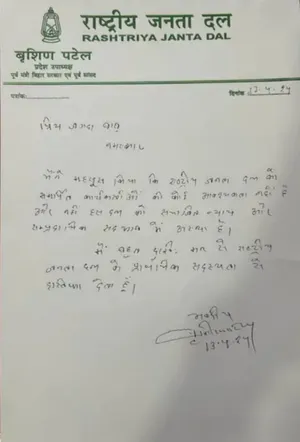 राष्ट्रीय जनता दल
RASHTRIYA JANTA DAL
बृशिण पटेल
प्रदेश उपाध्यक्ष
पूर्व मंत्री बिहार सरकार एवं पूर्व सांसद
पत्रांक:
दिनांक 13.4.24
प्रिय जगदा बाबु
नमस्कार
मैंने महसूस किया कि राष्ट्रीय जनता दल को
समर्पित कार्यकर्ताओं की कोई आवश्यकता नहीं है
और नहीं इस दल को सामाजिक न्याय और
साम्प्रदायिक सद्भाव में आस्था है।
मैं बहुत दुखित मन से राष्ट्रीय
जनता दल के प्राथमिक सदस्यता से
इस्तिफा देता हूँ।
भवदीय
13.4.24